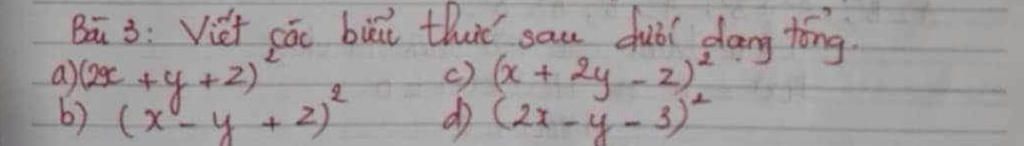 Bài 3: Viết các biểu thức sau dưới dạng tổng.
a) (2x + y + z)² c) (x + 2y - z)²
b) (x - y + z)² d) (2x - y - 3)²